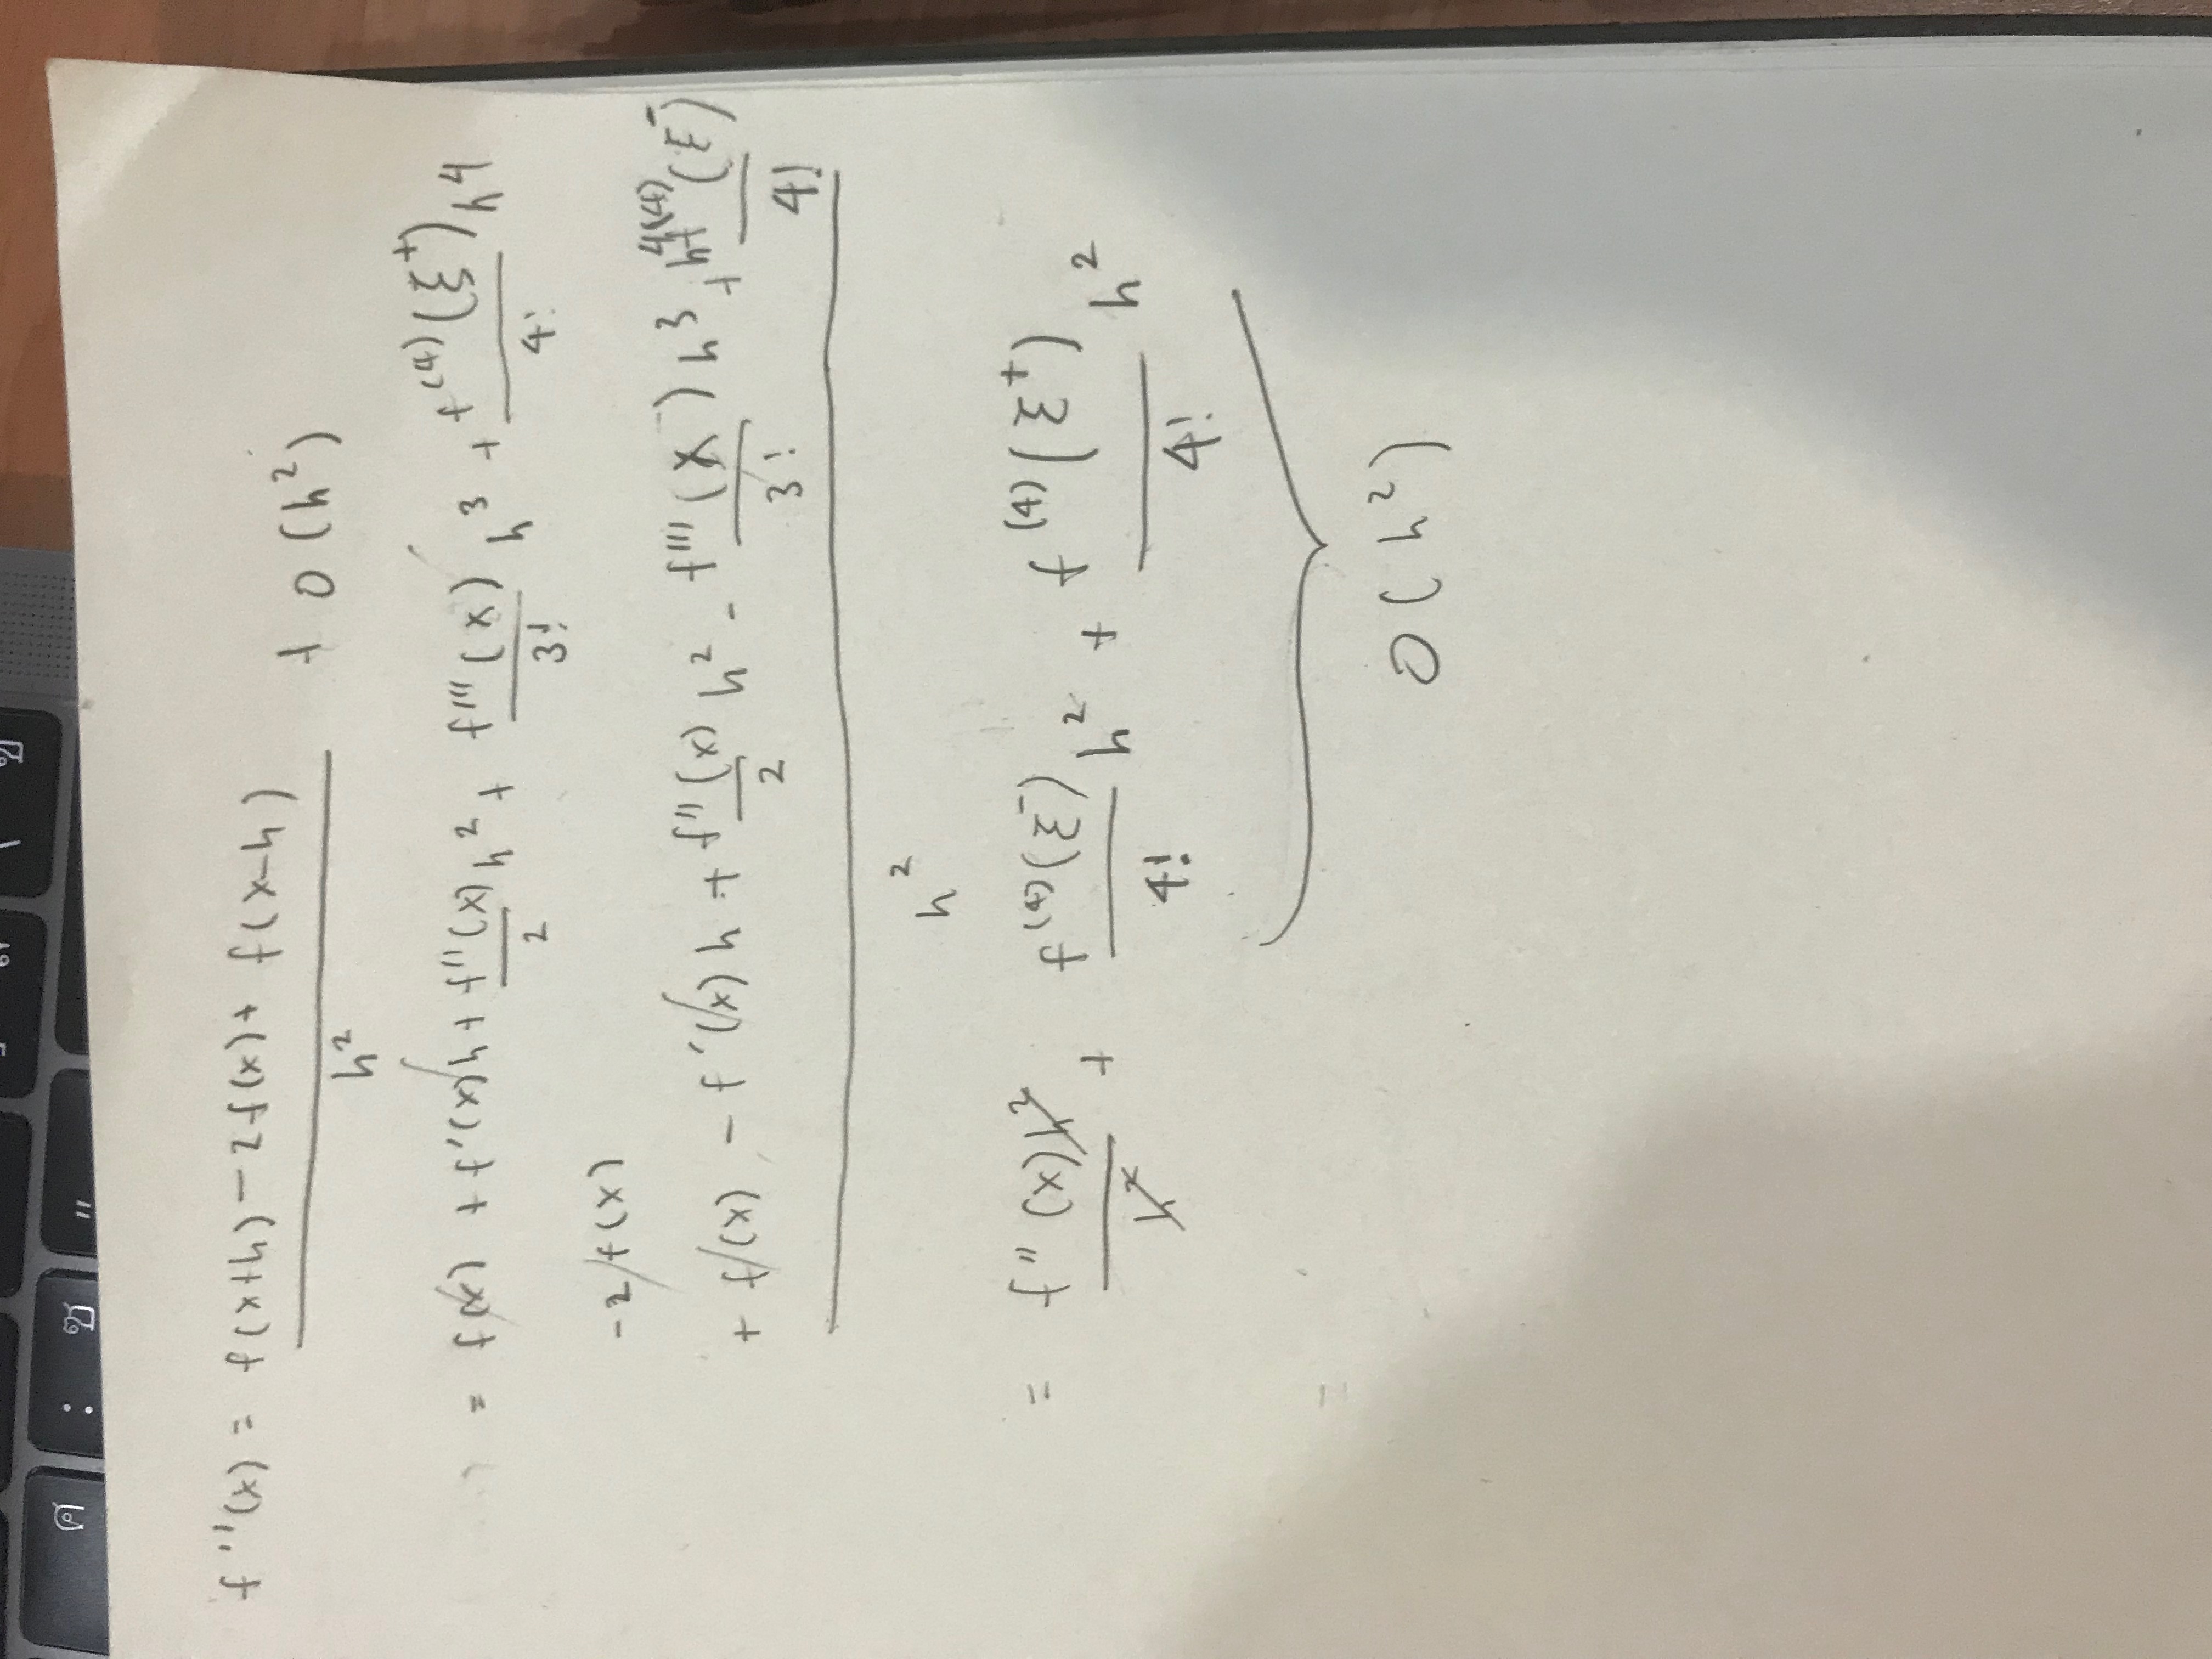 ศ : ซ "
f''(x) = f(x+h) - 2f(x) + f(x-h) / h² + O(h²)
= f(x) + f'(x)h + f''(x)/2 h² + f'''(x)/3! h³ + f⁽⁴⁾(ξ⁺)/4! h⁴
-2f(x)
+ f(x) - f'(x)h + f''(x)/2 h² - f'''(x⁻)/3! h³ + h⁴f⁽⁴⁾(ξ⁻)/4!
h²
= f''(x)h²/h² + f⁽⁴⁾(ξ⁻)/4! h² + f⁽⁴⁾(ξ⁺)/4! h²
O(h²)
=